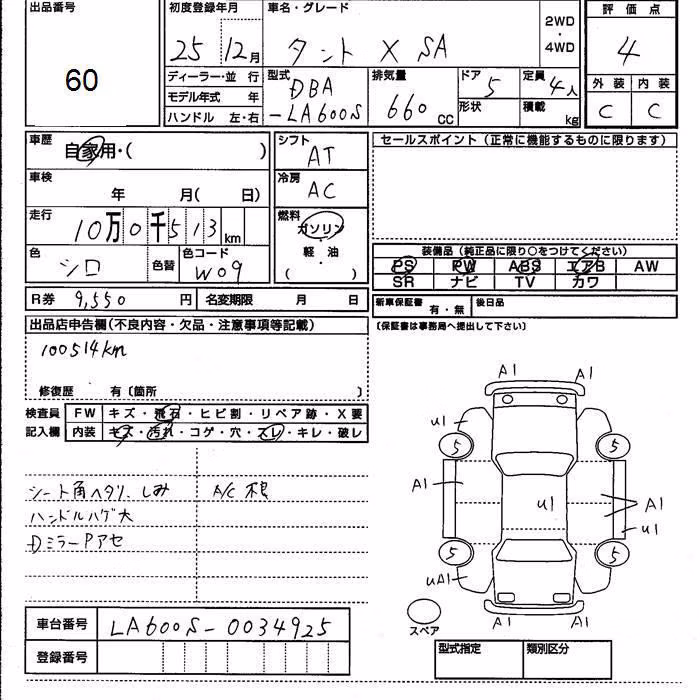 出品番号 60
初度登録年月 25 12月
車名・グレード タント X SA
2WD・4WD
評価点 4
外装 内装
C C
ディーラー・並 行
モデル年式 年
ハンドル 左・右
型式 DBA-LA600S
排気量 660 CC
ドア 5
形状
定員 4人
積載 kg
車歴 自家用・( )
車検 年 月( 日)
走行 10万0千513km
色 シロ 色替 色コード W09
シフト AT
冷房 AC
燃料 ガソリン・軽油 ( )
R券 9,550円 名変期限 月 日
セールスポイント (正常に機能するものに限ります)
装備品 (純正品に限り○をつけてください)
PS PW ABS エアB AW
SR ナビ TV カワ
新車保証書 有・無 後日品
(保証書は事務局へ提出して下さい)
出品店申告欄 (不良内容・欠品・注意事項等記載)
100514km
修復歴 有〔箇所 〕
検査員記入欄
FW キズ・飛石・ヒビ割・リペア跡・X要
内装 キズ・汚れ・コゲ・穴・スレ・キレ・破レ
シート角ヘタリ、しみ A/C 不良
ハンドルハゲ大
DミラーPアセ
車台番号 LA600S-0034925
登録番号
A1 A1
U1
5 5
A1 U1 A1
U1
5 5
UA1
A1 A1
スペア
型式指定 類別区分